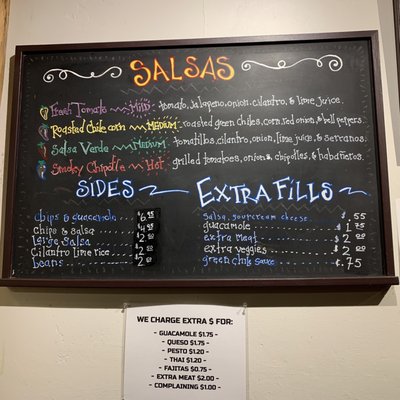 SALSAS
Fresh Tomato ~ Mild ~ tomato, jalapeno, onion, cilantro, & lime juice.
Roasted Chile corn ~ MEDIUM ~ roasted green chiles, corn, red onion, & bell peppers.
Salsa Verde ~ MEDIUM ~ tomatillos, cilantro, onion, lime juice, & serranos.
Smoky Chipotle ~ Hot ~ grilled tomatoes, onions, chipotles, & habañeros.
SIDES
chips & guacamole $6.95
chips & salsa $4.95
large salsa $2.00
Cilantro lime rice $2.00
beans $2.00
EXTRA FILLS
salsa, sour cream, cheese $.55
guacamole $1.75
extra meat $2.00
extra veggies $2.00
green chile sauce $.75
WE CHARGE EXTRA $ FOR:
- GUACAMOLE $1.75 -
- QUESO $1.75 -
- PESTO $1.20 -
- THAI $1.20 -
- FAJITAS $0.75 -
- EXTRA MEAT $2.00 -
- COMPLAINING $1.00 -